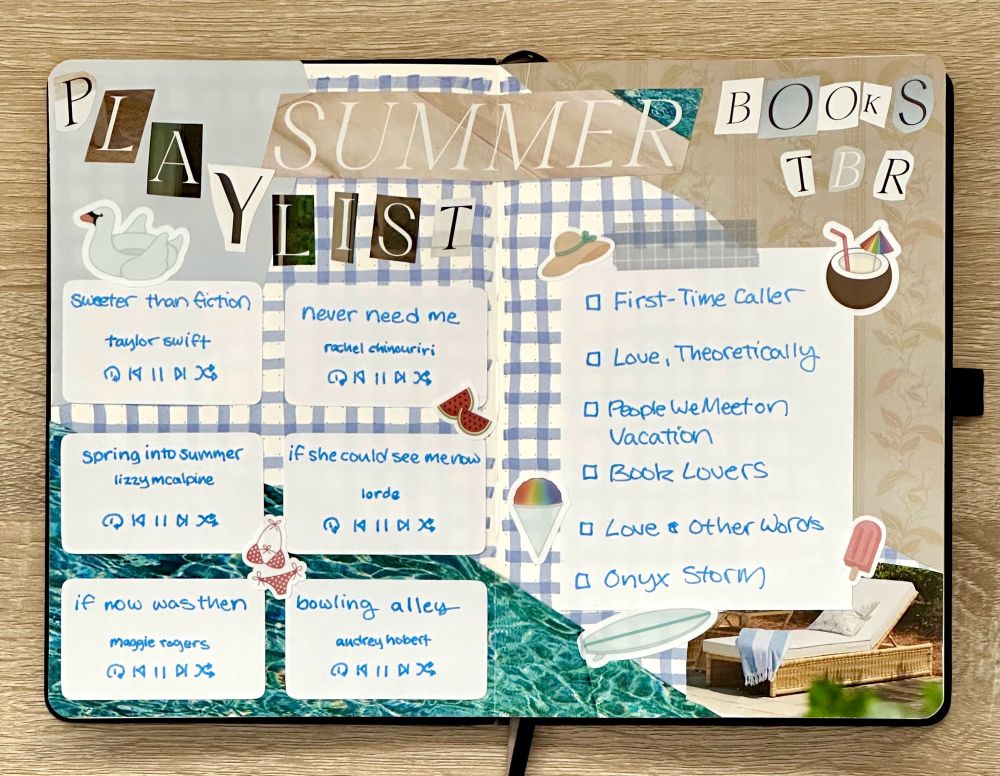 PLAYLIST
SUMMER
BOOKS
TBR
sweeter than fiction
taylor swift
never need me
rachel chinouriri
spring into summer
lizzy mcalpine
if she could see me now
lorde
if now was then
maggie rogers
bowling alley
audrey hobert
First-Time Caller
Love, Theoretically
People We Meet on
Vacation
Book Lovers
Love & Other Words
Onyx Storm